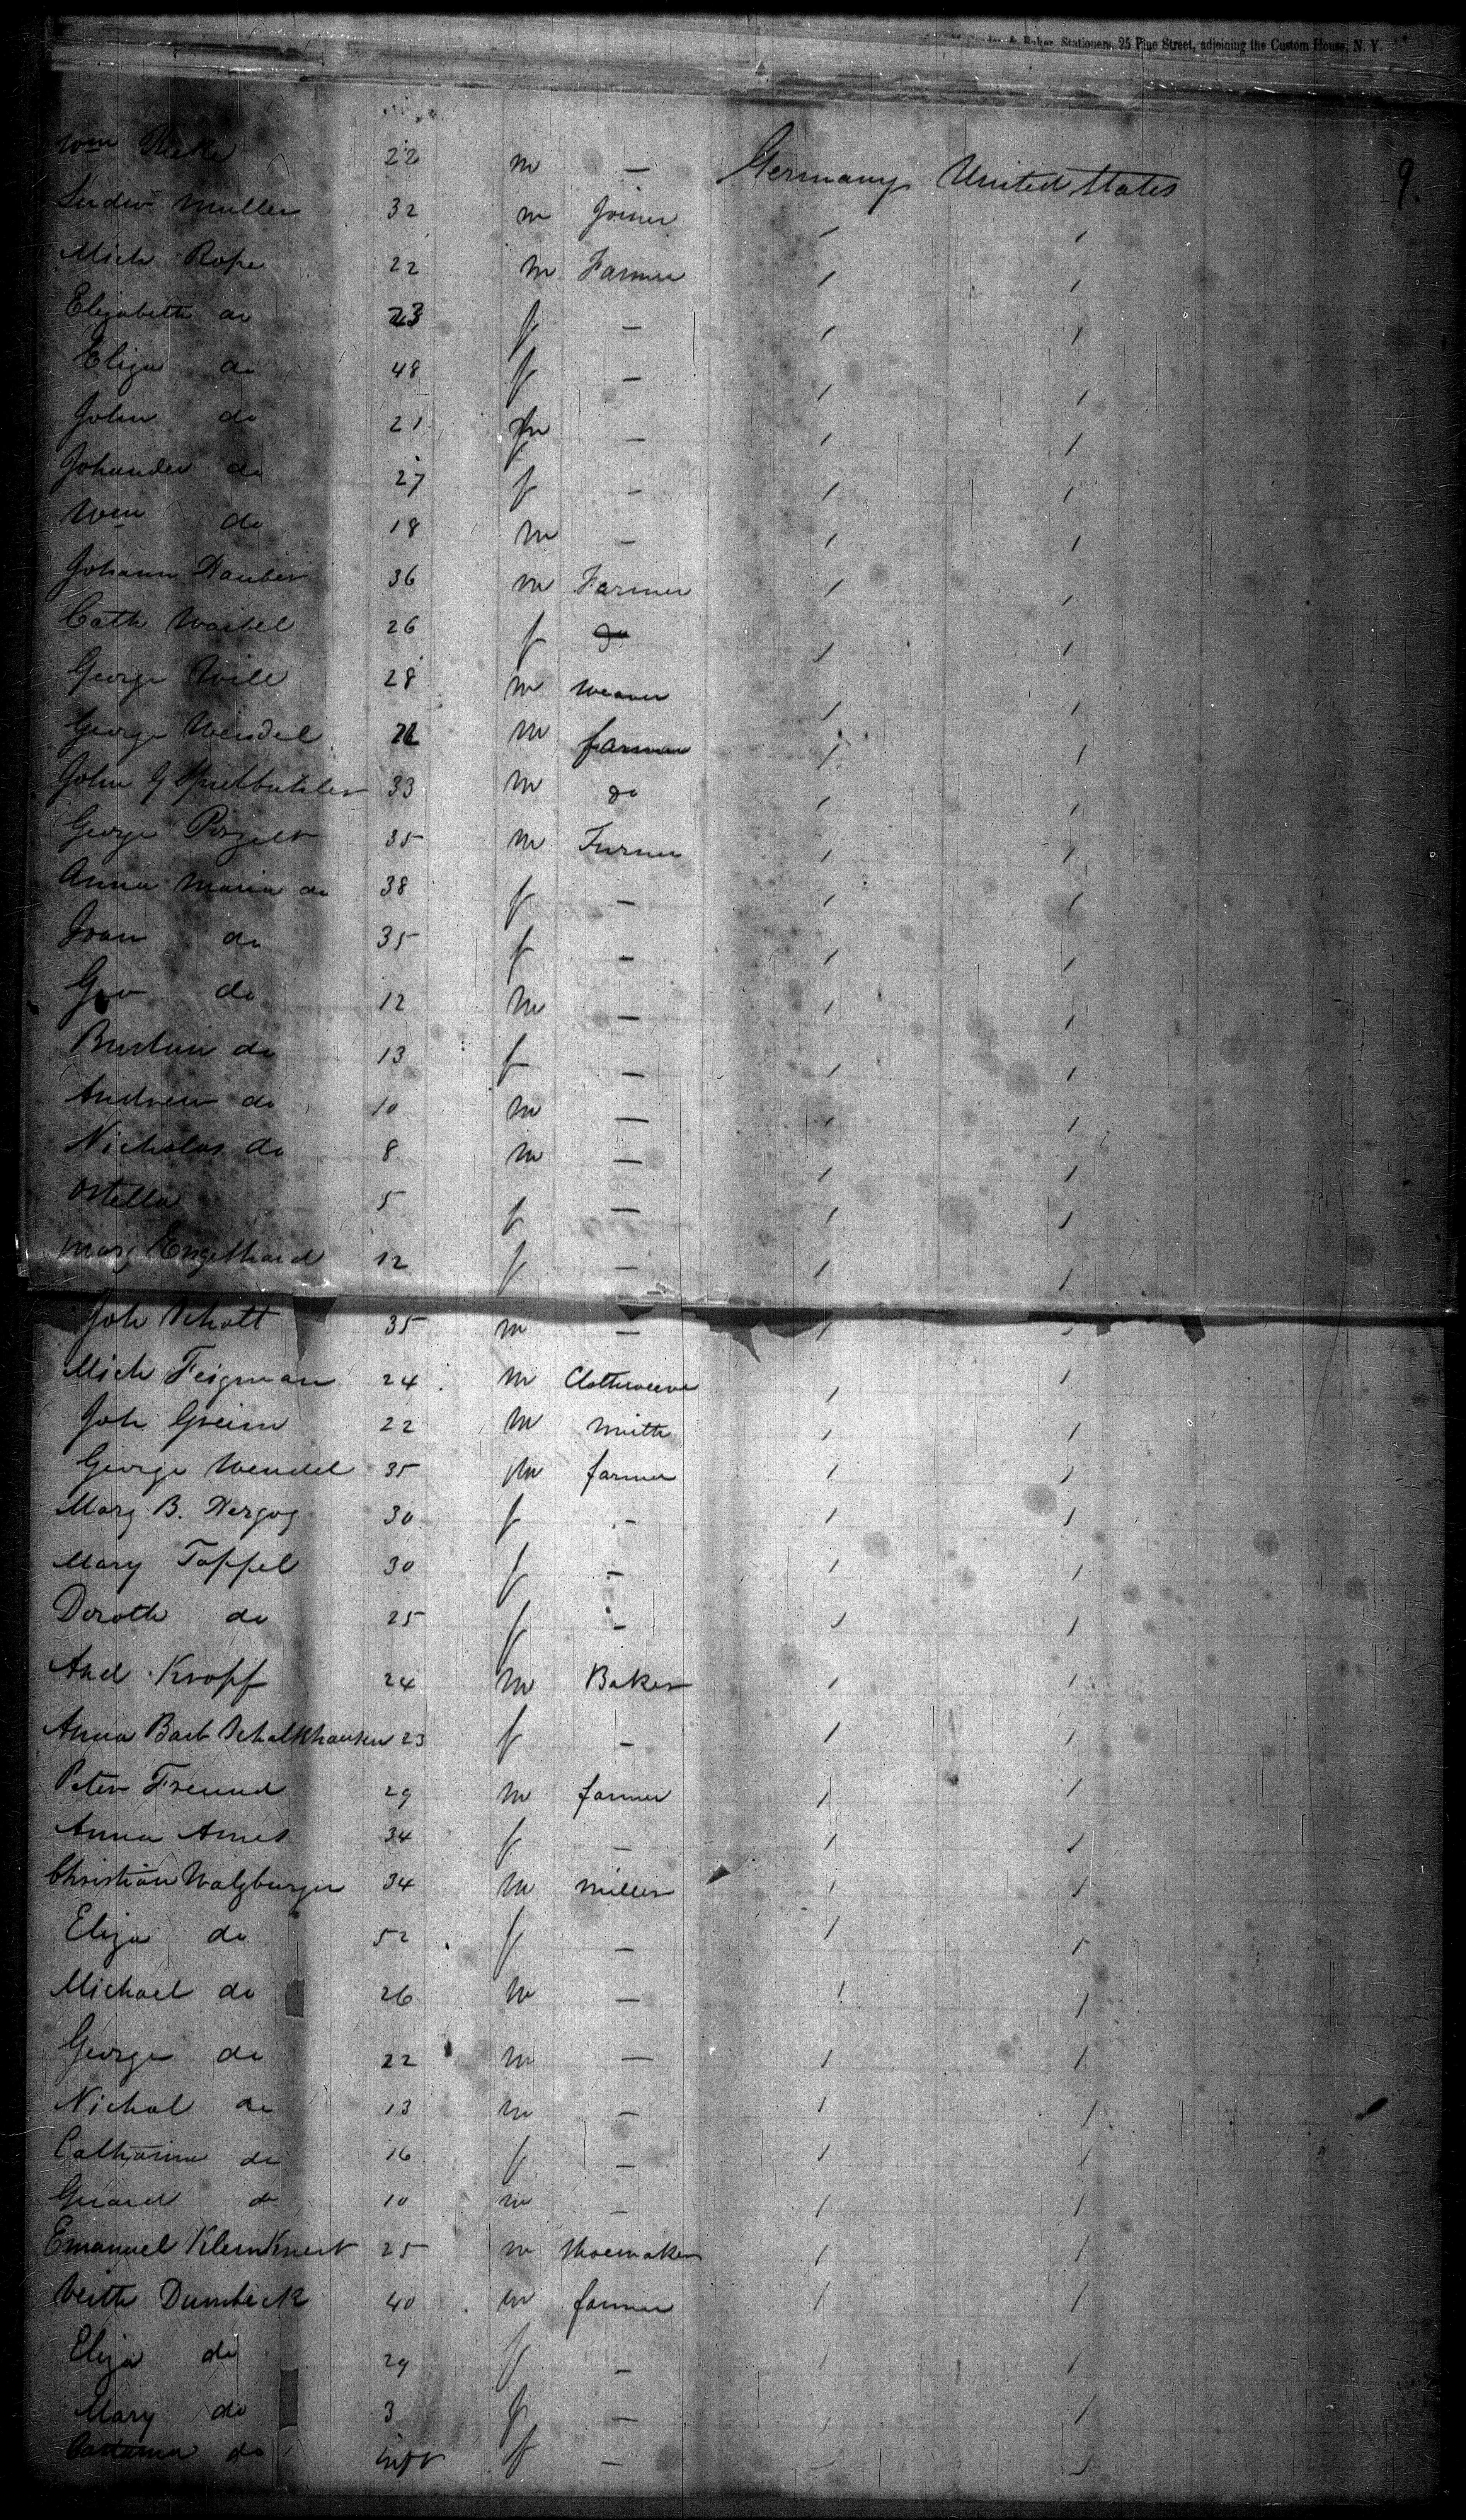 & Baker, Stationers, 25 Pine Street, adjoining the Custom House, N. Y.
9
Wm 22 m — Germany United States
Ludw Muller 32 m Joiner / /
Mich Rope 22 m Farmer / /
Elizabeth do 23 f — / /
Eliza do 48 f — / /
John do 21 m — / /
do 27 f — / /
Wm do 18 m — / /
Johann Hauber 36 m Farmer / /
Cath Waibel 26 f do / /
George Will 28 m weaver / /
George Wendel m farmer / /
John G 33 m do / /
George 35 m / /
Anna Maria do 38 f — / /
do 35 f — / /
Geo do 12 m — / /
do 13 f — / /
Andrew do 10 m — / /
Nicholas do 8 m — / /
5 f — / /
Marg Engelhard 12 f — / /
Joh Schott 35 m — / /
Mich Feigman 24 m / /
Joh Greim 22 m Smith / /
George Wendel 35 m farmer / /
Marg B. Herzog 30 f — / /
Mary Toppel 30 f — / /
Doroth do 25 f — / /
And Kropf 24 m Baker / /
Anna Barb Schalkhausen 23 f — / /
Peter Freund 29 m farmer / /
Anna Ames 34 f — / /
Christian Walzburger 34 m miller / /
Eliza do 52 f — / /
Michael do 26 m — / /
George do 22 m — / /
Nichol do 13 m — / /
Catharine do 16 f — / /
do 10 m — / /
Emanuel 25 m Shoemaker / /
Veith Dumbeck 40 m farmer / /
Eliza do 29 f — / /
Mary do 3 f — / /
do inft f — / /